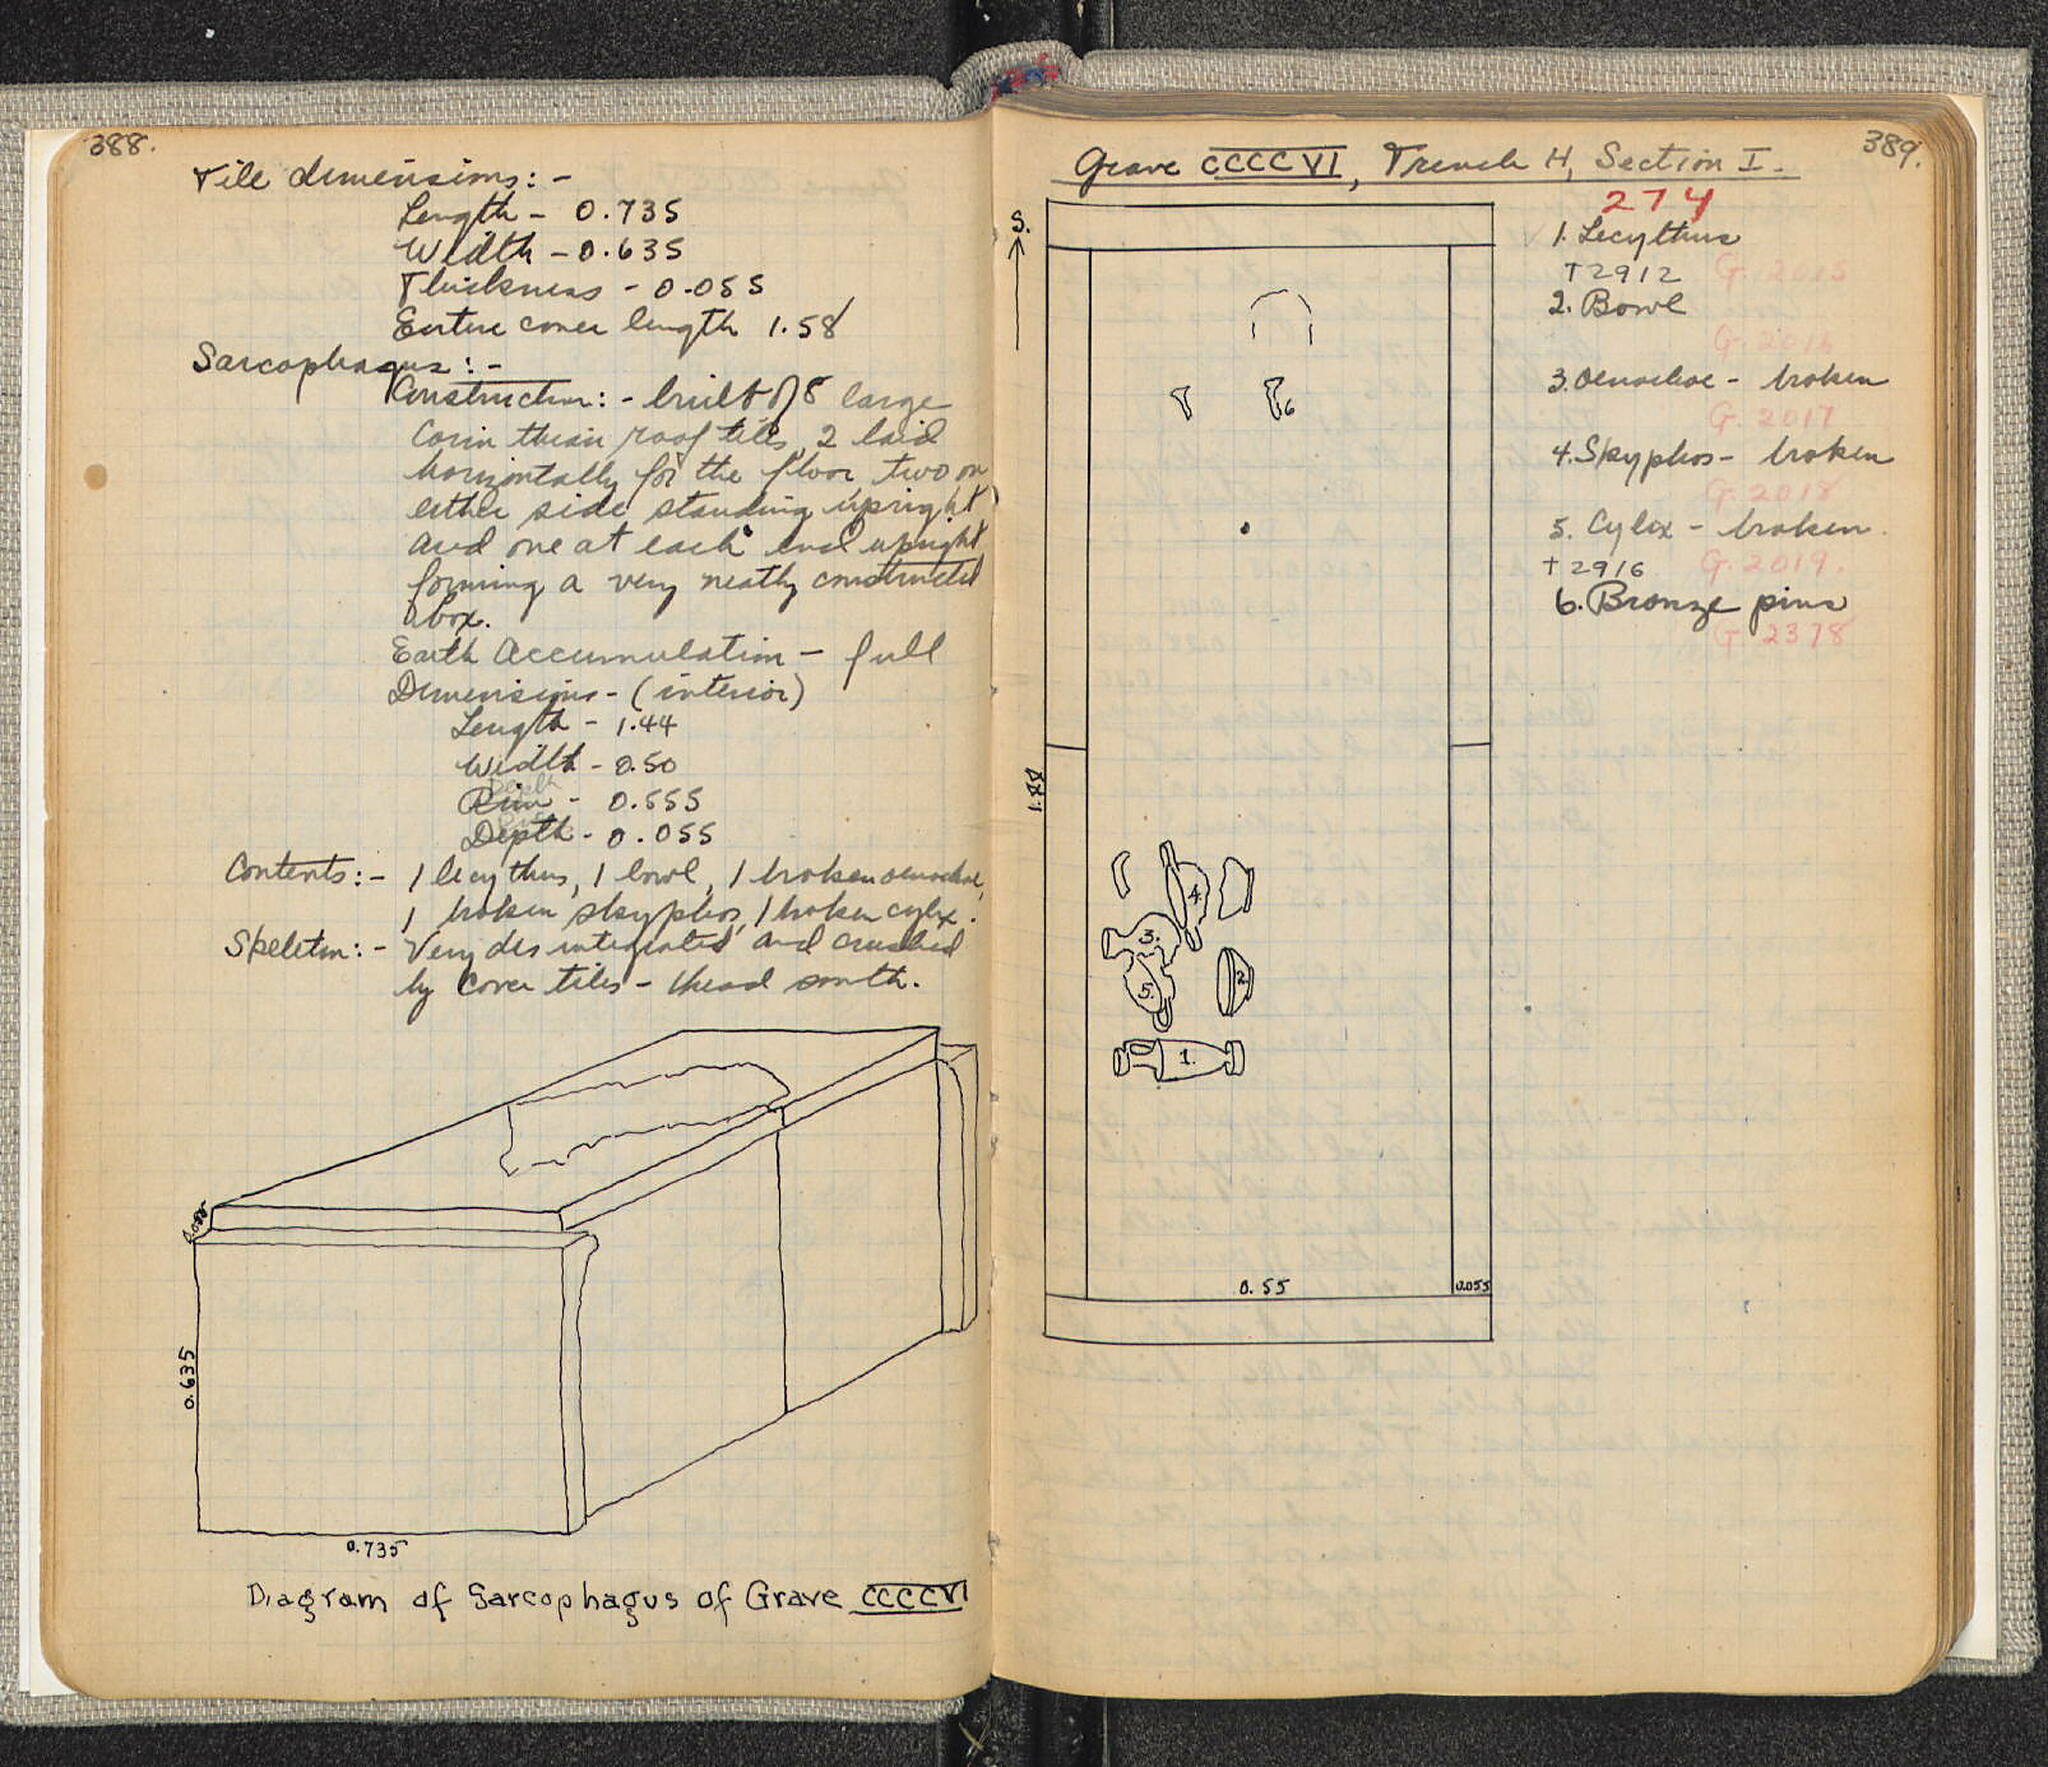 388.
Tile dimensions:-
Length - 0.735
Width - 0.635
Thickness - 0.055
Entire cover length 1.58
Sarcophagus:-
Construction:- built of 8 large
Corinthian roof tiles, 2 laid
horizontally for the floor, two on
either side standing upright
and one at each end upright
forming a very neatly constructed
box.
Earth Accumulation - full
Dimensions - (interior)
Length - 1.44
Width - 0.50
Rim - 0.555
Depth - 0.055
Contents:- 1 lecythus, 1 bowl, 1 broken oenochoe,
1 broken skyphos, 1 broken cylix.
Skeleton:- Very desintegrated and crushed
by cover tiles - head south.
0.635
0.735
Diagram of Sarcophagus of Grave CCCCVI
389.
Grave CCCCVI, Trench H, Section I.
274
S.
1. Lecythus
T2912 G. 2015
2. Bowl
G. 2016
3. Oenochoe - broken
G. 2017
4. Skyphos - broken
G. 2018
5. Cylix - broken.
T2916 G. 2019.
6. Bronze pins
G. 2378
6
4
3.
5.
2
1.
0.55
0.055